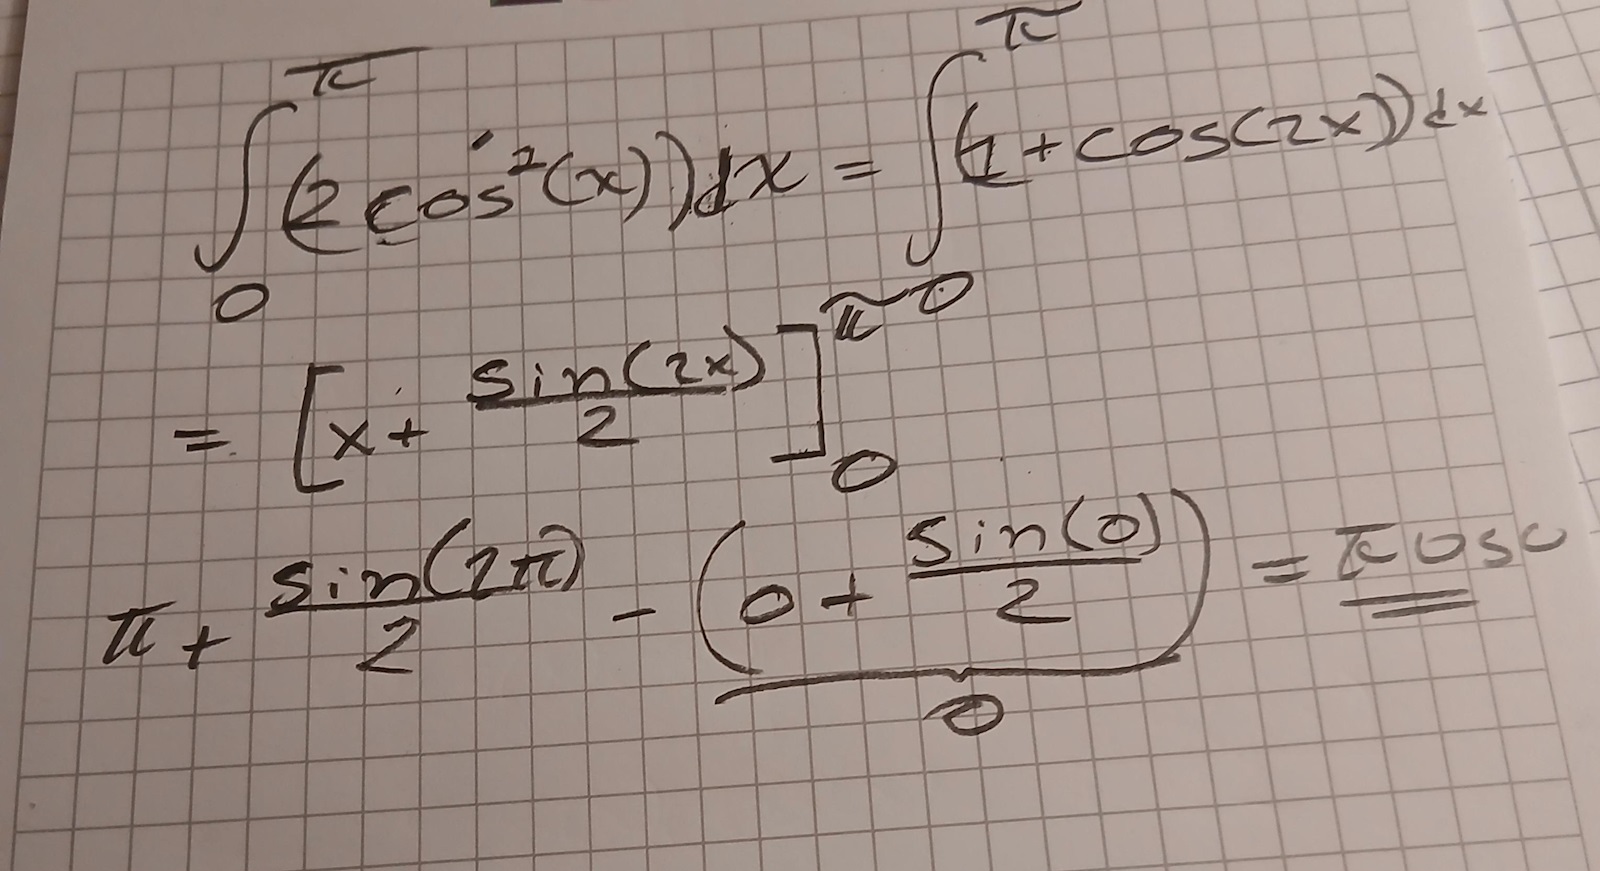 ∫₀^π (2cos²(x))dx = ∫₀^π (1+cos(2x))dx
= [x + sin(2x)/2]₀^π
π + sin(2π)/2 - (0 + sin(0)/2) = π
0